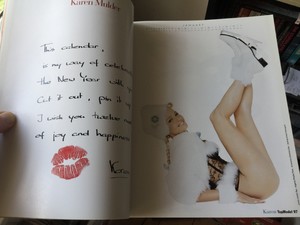 Karen Mulder
This calendar,
is my way of celebra
the New Year with
Cut it out, pin it
I wish you twelve
of joy and happiness
Karen
Karen TopModel '97